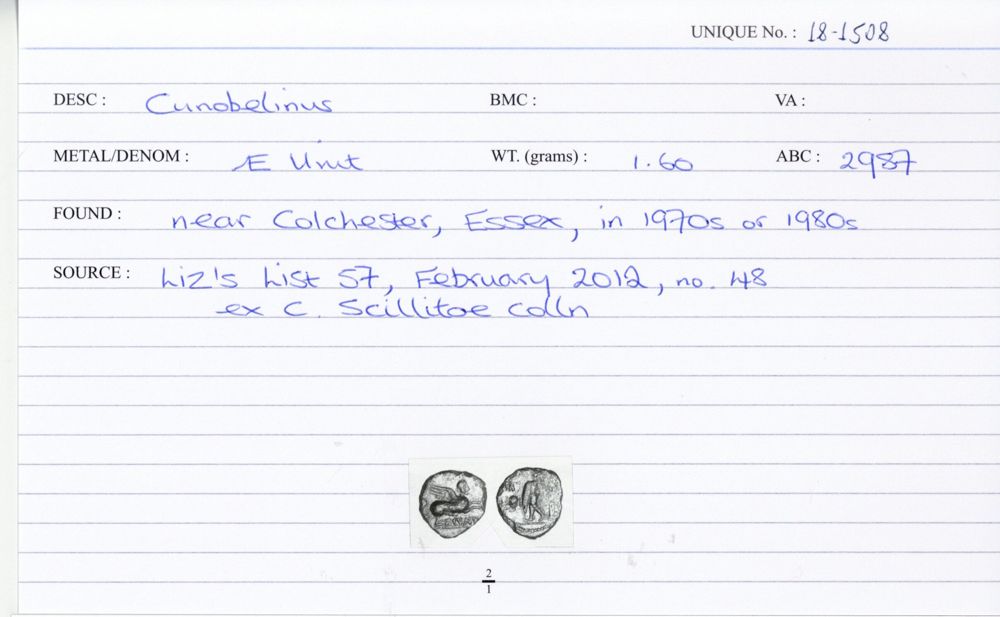 UNIQUE No. : 18-1508
DESC : Cunobelinus BMC : VA :
METAL/DENOM : Æ Unit WT. (grams) : 1.60 ABC : 2987
FOUND : near Colchester, Essex, in 1970s or 1980s
SOURCE : Liz's List 57, February 2012, no. 48
ex C. Scillitoe colln
2
1